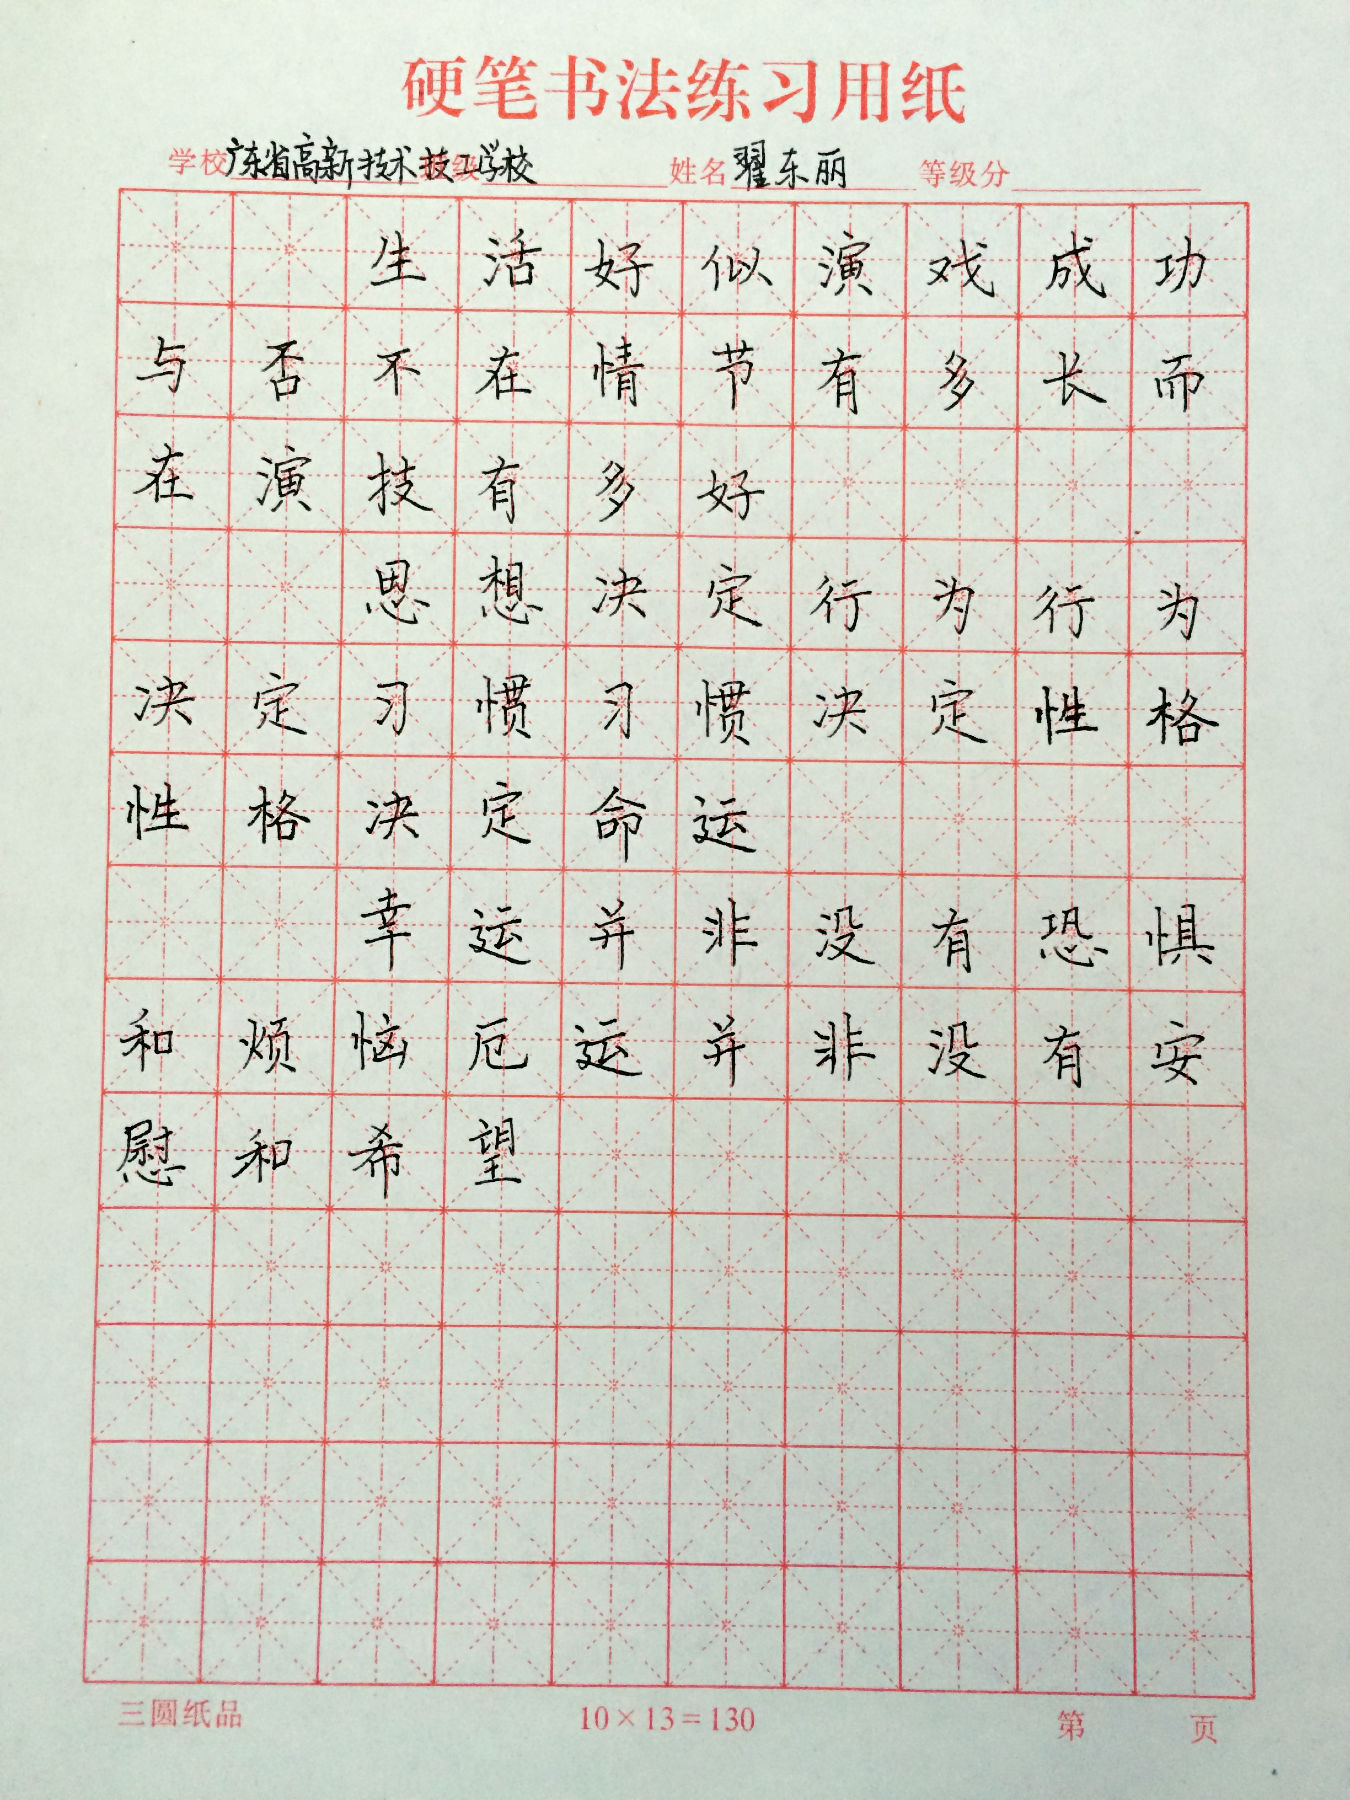 硬笔书法练习用纸
学校广东省高新技术技工学校 班级 姓名翟东丽 等级分
生活好似演戏成功
与否不在情节有多长而
在演技有多好
思想决定行为行为
决定习惯习惯决定性格
性格决定命运
幸运并非没有恐惧
和烦恼厄运并非没有安
慰和希望
三圆纸品 10×13=130 第 页